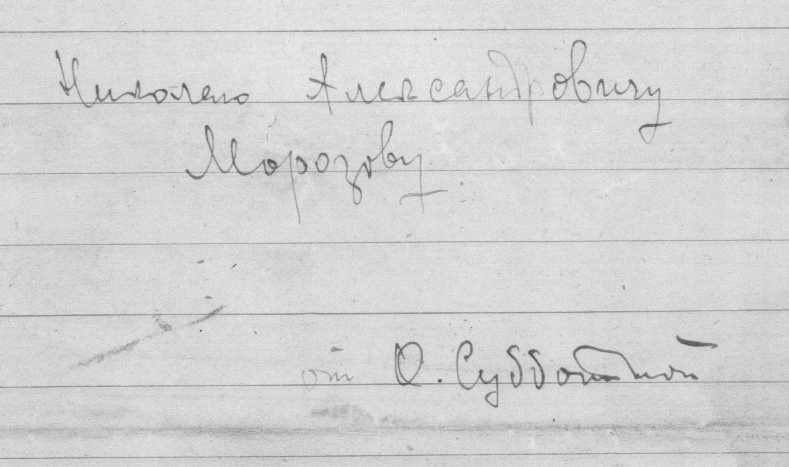 Николаю Александровичу
Морозову
от О. Субботиной